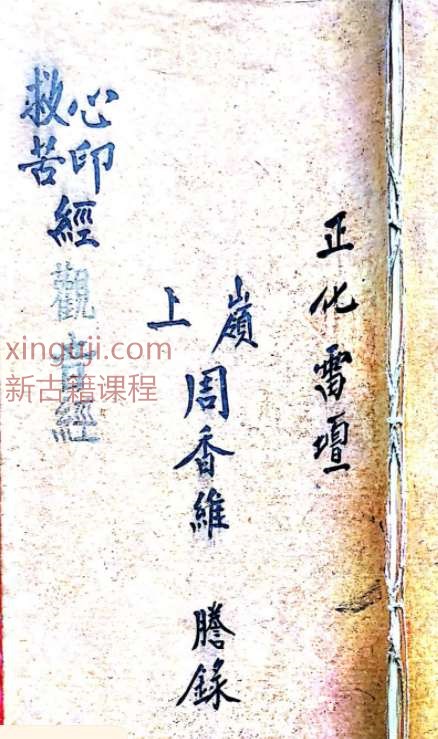 正化雷壇
嶺上周香維 謄錄
心印救苦經觀音經
xinguji.com
新古籍课程